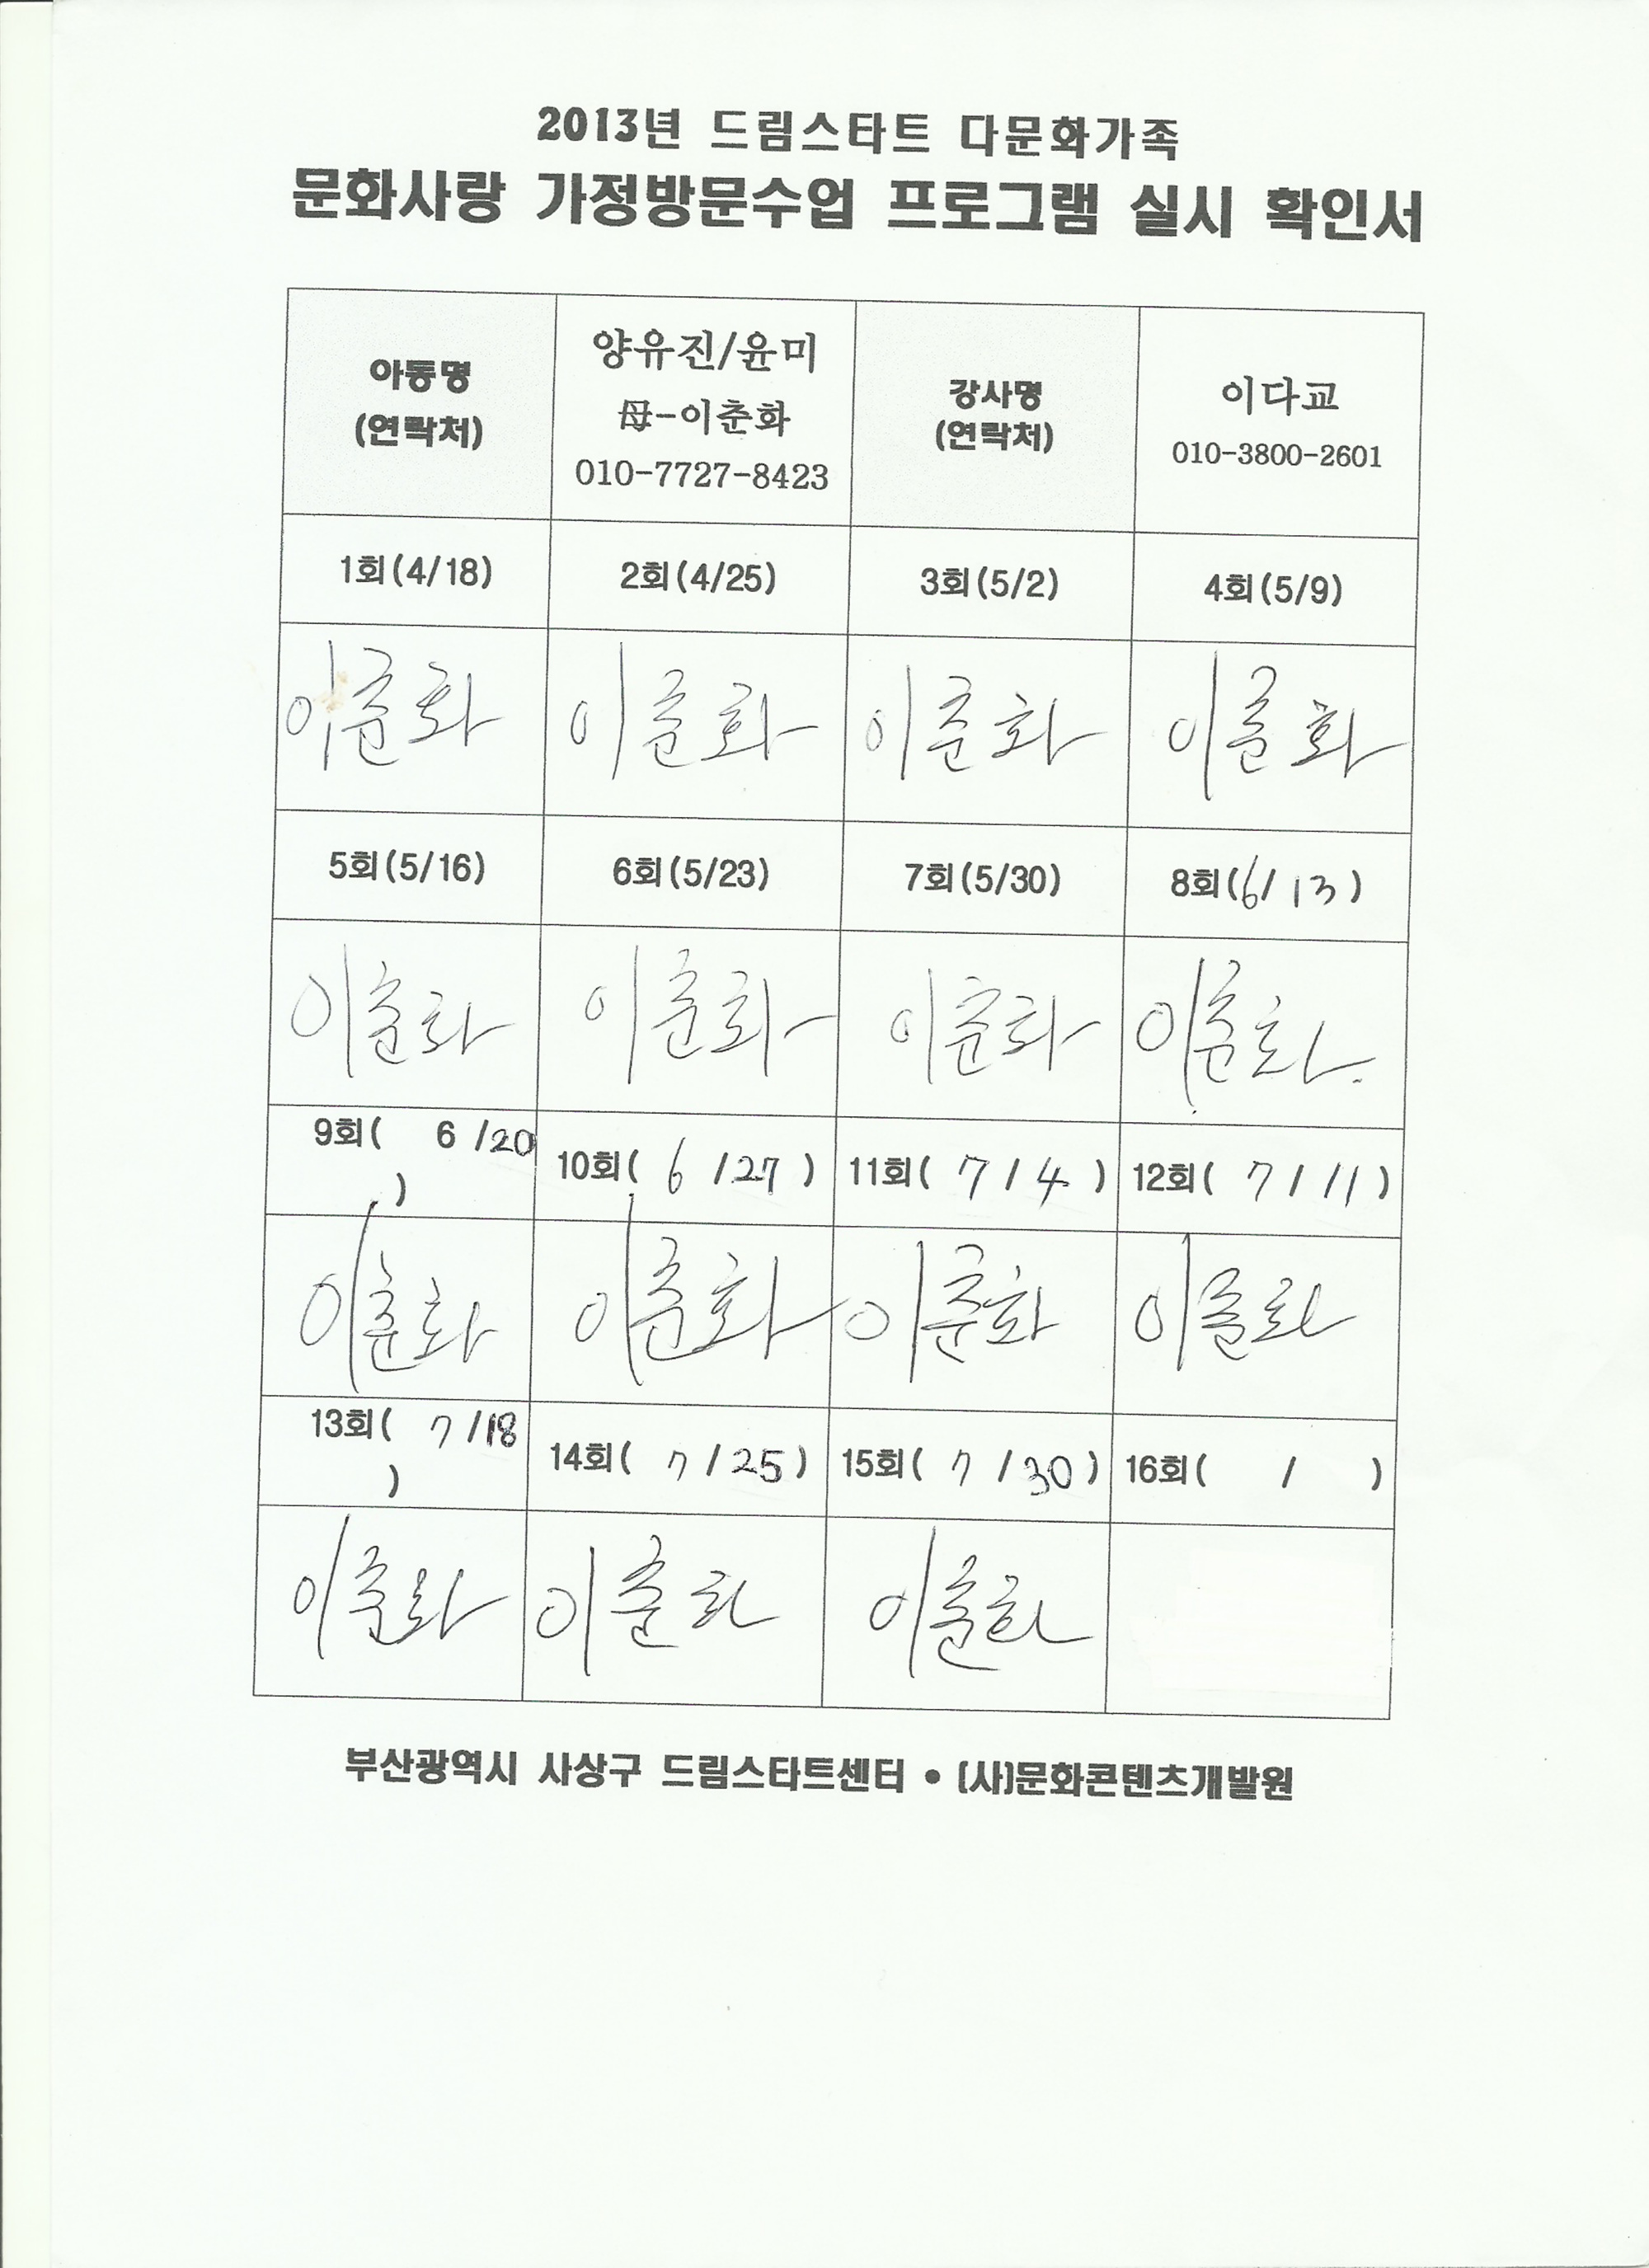 2013년 드림스타트 다문화가족
문화사랑 가정방문수업 프로그램 실시 확인서
아동명
(연락처)
양유진/윤미
母-이춘화
010-7727-8423
강사명
(연락처)
이다교
010-3800-2601
1회(4/18) 2회(4/25) 3회(5/2) 4회(5/9)
이춘화 이춘화 이춘화 이춘화
5회(5/16) 6회(5/23) 7회(5/30) 8회(6/13)
이춘화 이춘화 이춘화 이춘화
9회( 6 /20
) 10회( 6 /27 ) 11회( 7 / 4 ) 12회( 7 / 11 )
이춘화 이춘화 이춘화 이춘화
13회( 7 /18
) 14회( 7 / 25 ) 15회( 7 / 30 ) 16회( / )
이춘화 이춘화 이춘화
부산광역시 사상구 드림스타트센터 • (사)문화콘텐츠개발원